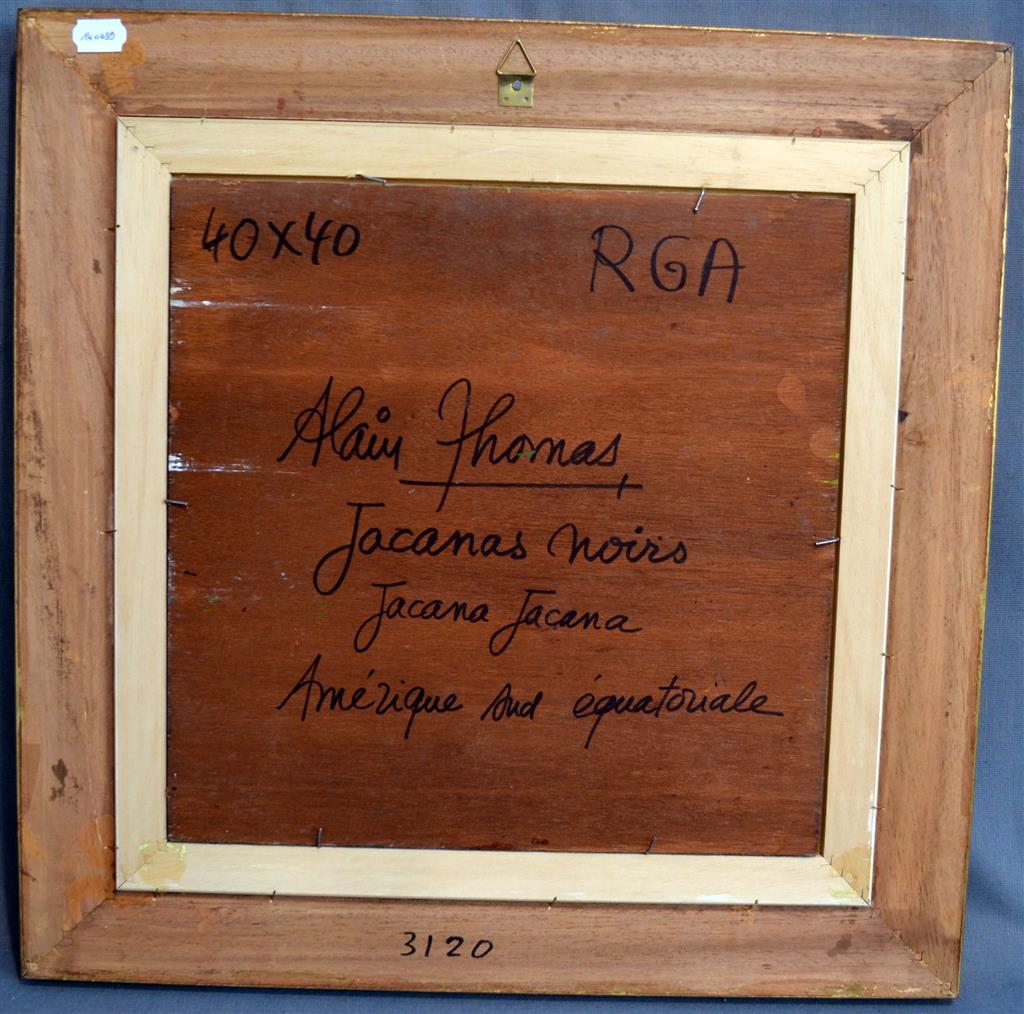 40x40 RGA
Alain Thomas,
Jacanas noirs
Jacana Jacana
Amérique Sud équatoriale
3120